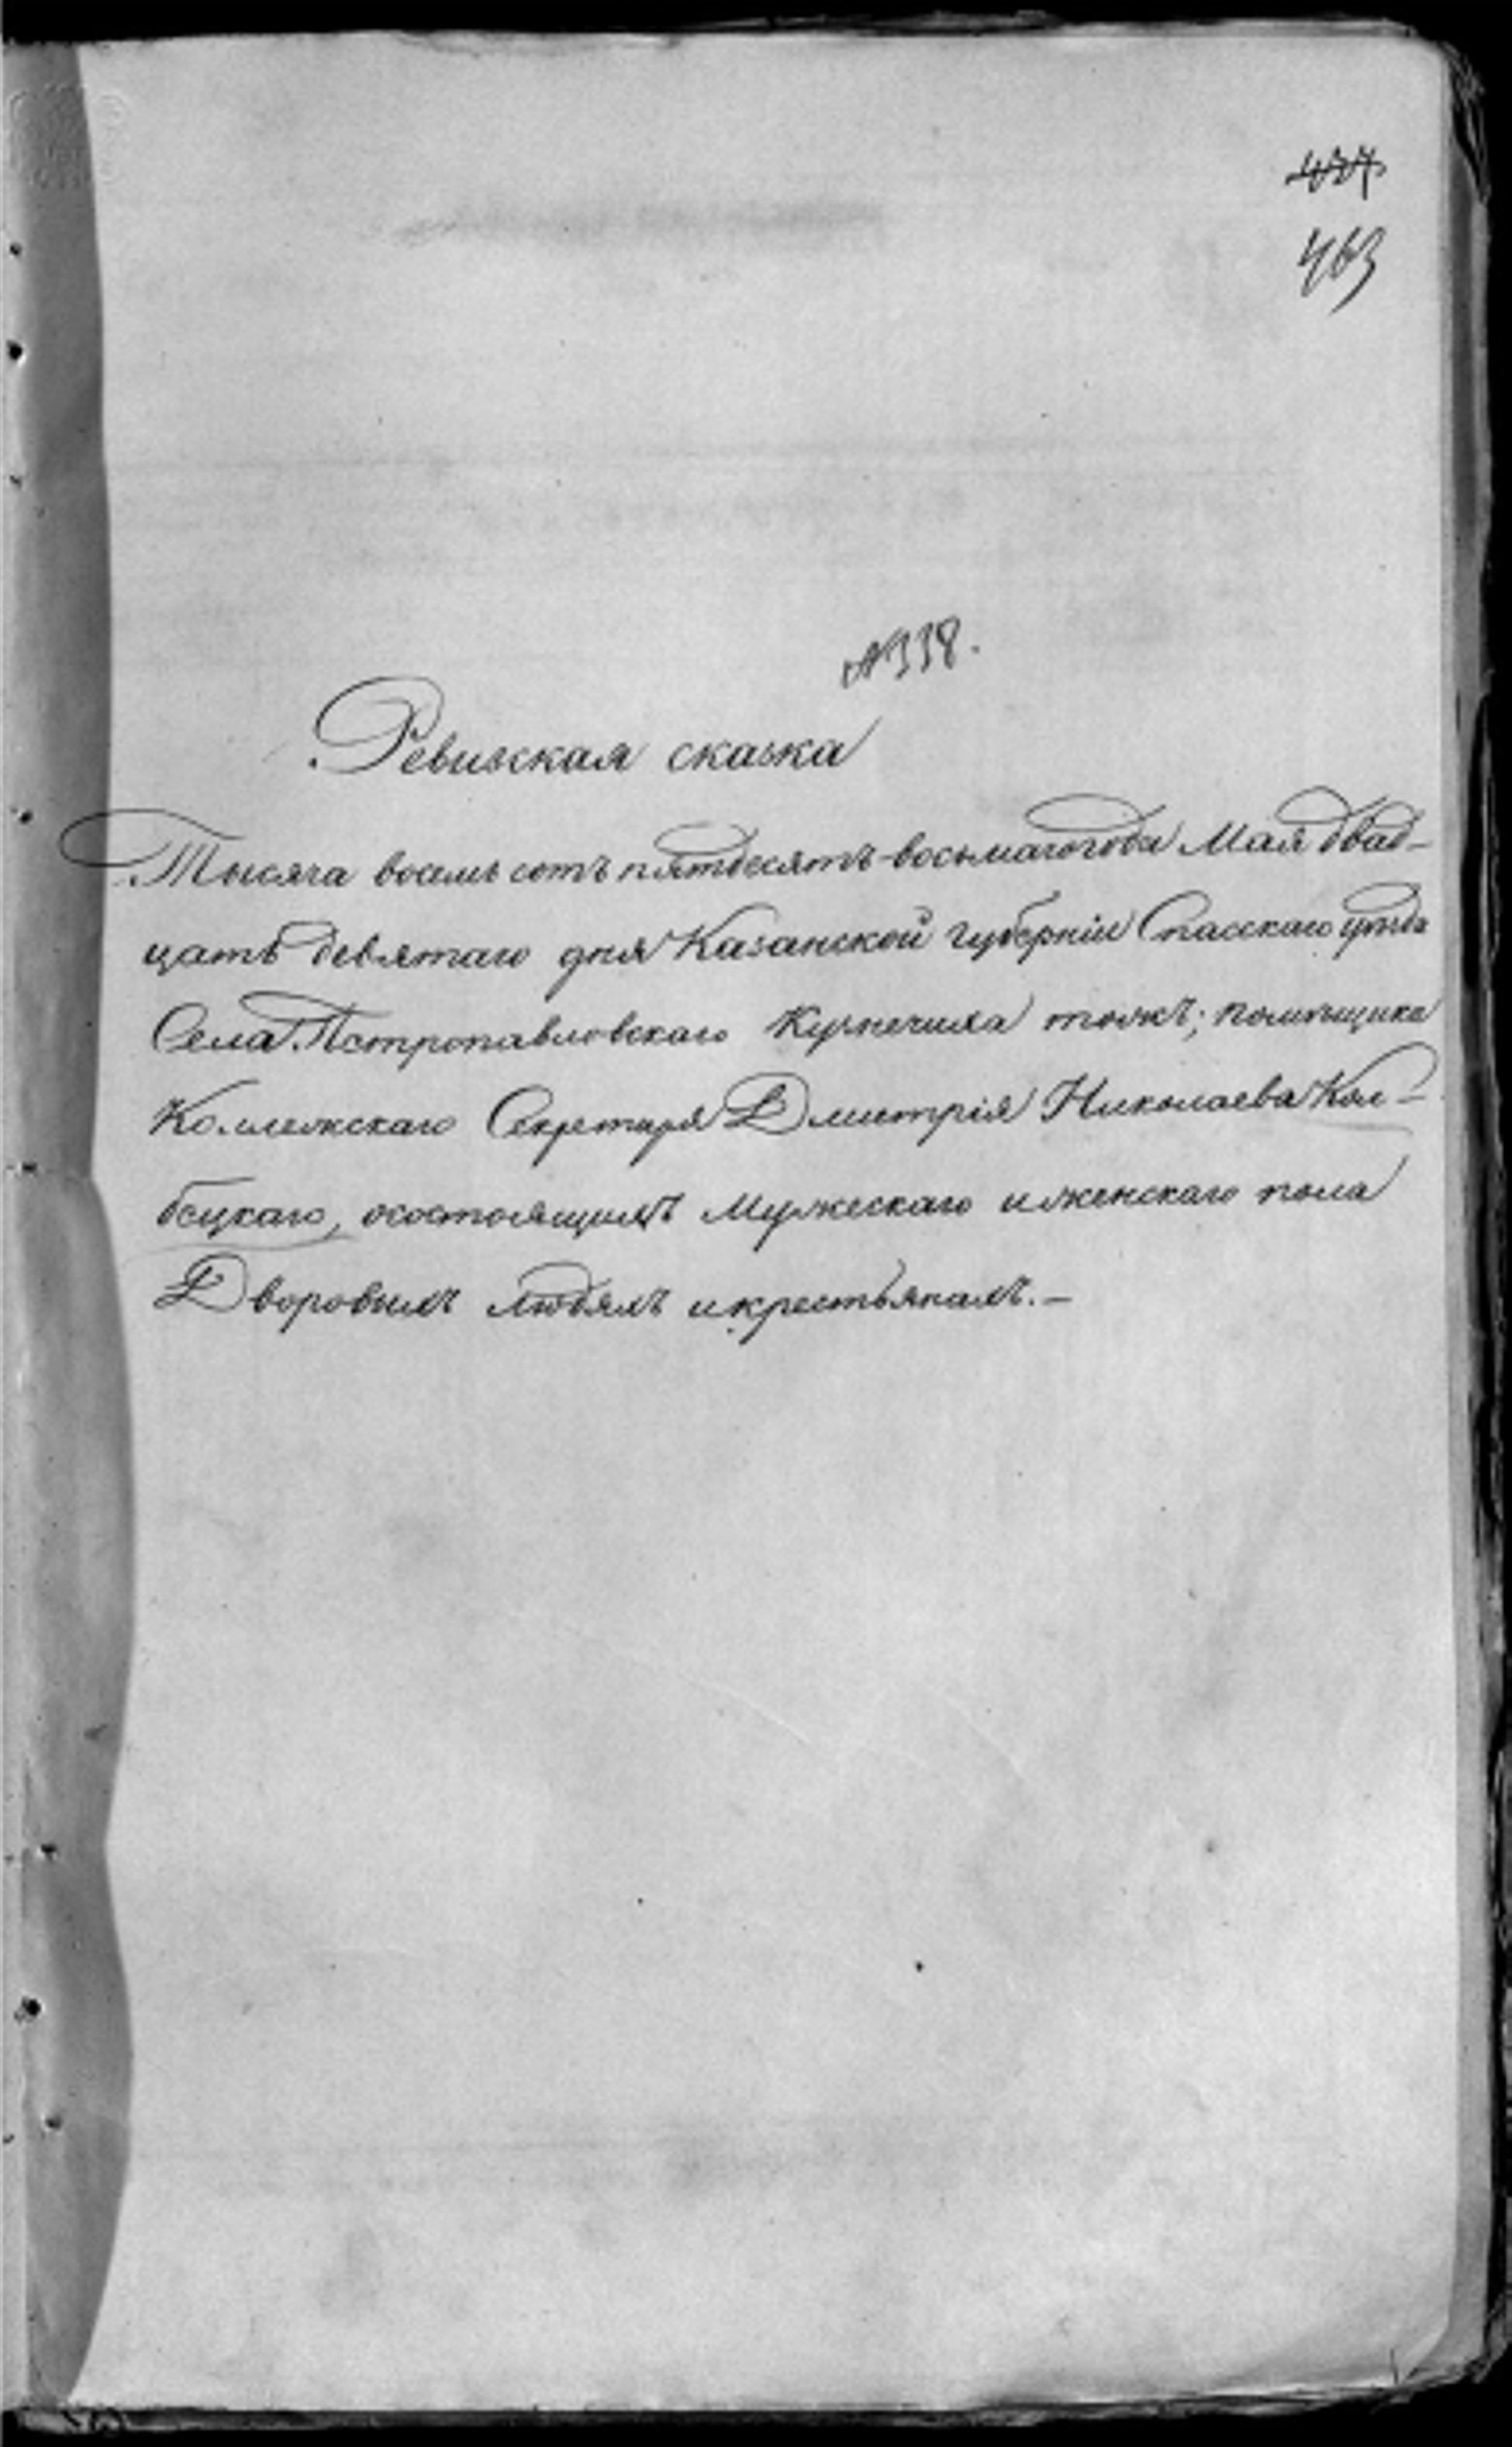 427
463
№ 338.
Ревизская сказка
Тысяча восемь сотъ пятдесятъ восьмаго года Мая двад-
цать девятаго дня Казанской губерніи Спасскаго уѣзда
Села Петропавловскаго Кузнечиха тожъ; помѣщика
Коллежскаго Секретаря Дмитрія Николаева Кол-
бецкаго, о состоящихъ мужескаго и женскаго пола
Дворовымъ людямъ и крестьянамъ. —